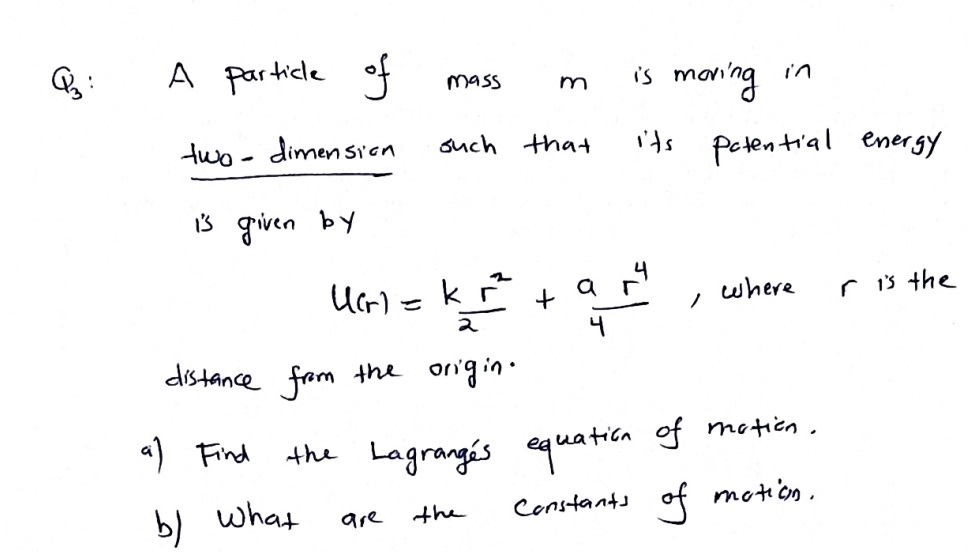 Q3: A particle of mass m is moving in
two-dimension such that its potential energy
is given by
U(r) = k r²/2 + a r⁴/4 , where r is the
distance from the origin.
a) Find the Lagrange's equation of motion.
b) What are the constants of motion.